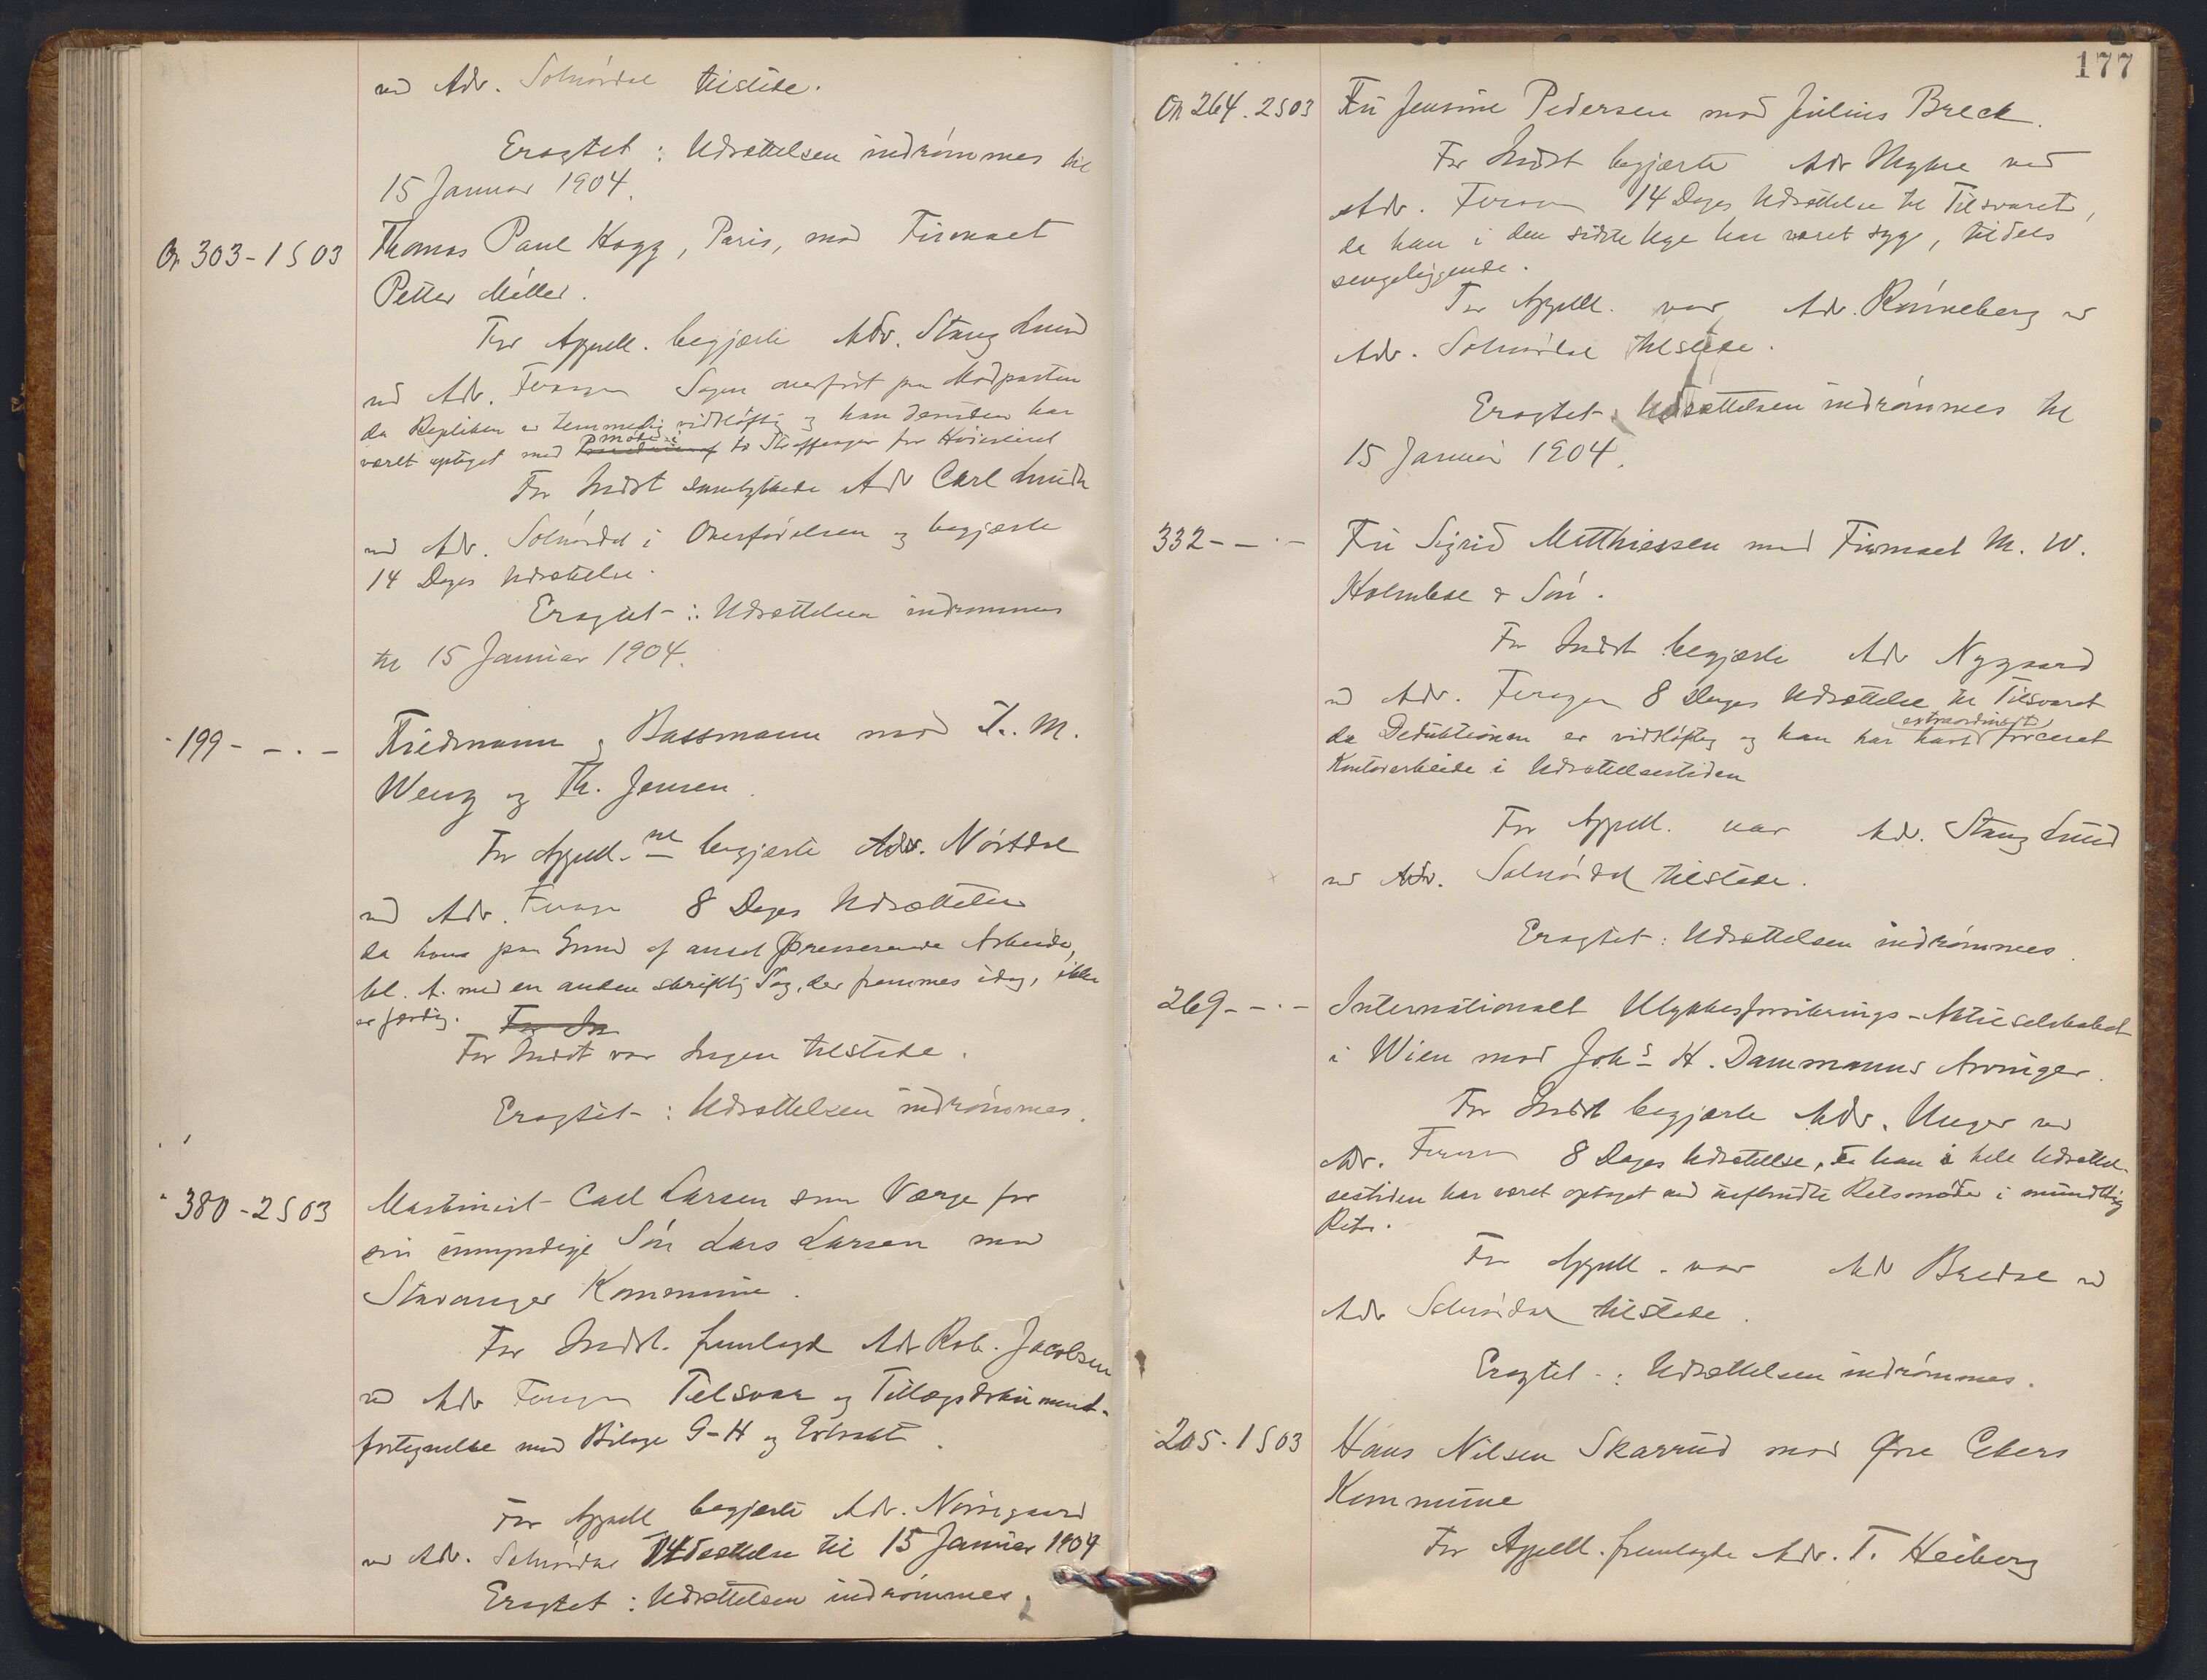 ved Adv. Solnørdal tilstede.
Eragtet: Udsættelsen indrømmes til
15 Januar 1904.
Or 303-1 S 03 Thomas Paul Kagg, Paris, mod Firmaet
Petter Møller.
For Appell. begjærte Adv. Stang Lund
ved Adv. Sagen overført paa Modparten
da Repliken er temmelig vidløftig og han desuden har
været optaget med møde i to Straffesager for Høiesteret
For Indst samtykkede Adv Carl Lunde
ved Adv. Solnørdal i Overførelsen og begjærte
14 Dages Udsættelse.
Eragtet-: Udsættelsen indrømmes
til 15 Januar 1904.
- 199 - - . - Friedmann & Bassmann mod T. M.
Weng og Th. Jensen.
For Appell.ne begjærte Adv. Nørdal
ved Adv. 8 Dages Udsættelse
da han paa Grund af andet pressserende Arbeide,
bl. A. med en anden skriftlig Sag, der fremmes idag, ikke
er færdig. For In
For Indst var Ingen tilstede.
Eragtet-: Udsættelsen indrømmes.
" 380-2 S 03 Maskinist Carl Larsen som Værge for
sin umyndige Søn Lars Larsen mod
Stavanger Kommune.
For Indst. fremlagde Adv Rob. Jacobsen
ved Adv Tilsvar og Tillægsdokument-
fortegnelse med Bilage G-H og Extrakt.
For Appell begjærte Adv. Nørregaard
ved Adv. Solnørdal Udsættelse til 15 Januar 1904
Eragtet: Udsættelsen indrømmes.
177
Or 264. 2 S 03 Fru Jensine Pedersen mod Julius Breck.
For Indst begjærte Adv Myhre ved
Adv. 14 Dages Udsættelse til Tilsvaret,
da han i den sidste Uge har været syg, tildels
sengeliggende.
For Appell. var Adv. Rønneberg v
Adv. Solnørdal tilstede.
Eragtet: Udsættelsen indrømmes til
15 Januar 1904.
332 - - . - Fru Sigrid Matthiessen mod Firmaet M. W.
Holmboe & Søn.
For Indst begjærte Adv Nygaard
v Adv. 8 Dages Udsættelse til Tilsvaret
da Deduktionen er vidløftig og han har havt extraordinært forceret
Kontorarbeide i Udsættelsestiden
For Appell. var Adv. Stang Lund
ved Adv. Solnørdal tilstede.
Eragtet: Udsættelsen indrømmes.
269 - - . - Internationalt Ulykkesforsikrings-Aktieselskabet
i Wien mod Johs H. Dammanns Arvinger.
For Indst begjærte Adv. Unger ved
Adv. 8 Dages Udsættelse, da han i hele Udsættel-
sestiden har været optaget med uafbrudte Retsmøder i mundtlig
Ret.
For Appell. var Adv Bredal v
Adv Solnørdal tilstede.
Eragtet-: Udsættelsen indrømmes.
205-1 S 03 Hans Nilsen Skarrud mod Øvre Ekers
Kommune
For Appell. fremlagde Adv. T. Heiberg